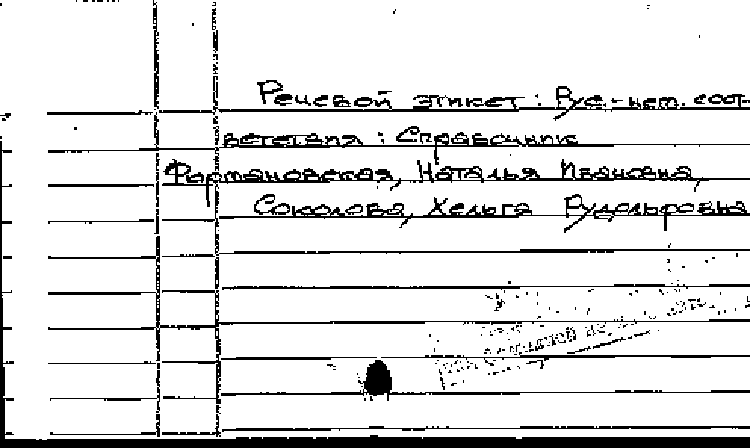 Речевой этикет: Рус.-нем. соот-
ветствия: Справочник
Формановская, Наталья Ивановна,
Соколова, Хельга Рудольфовна